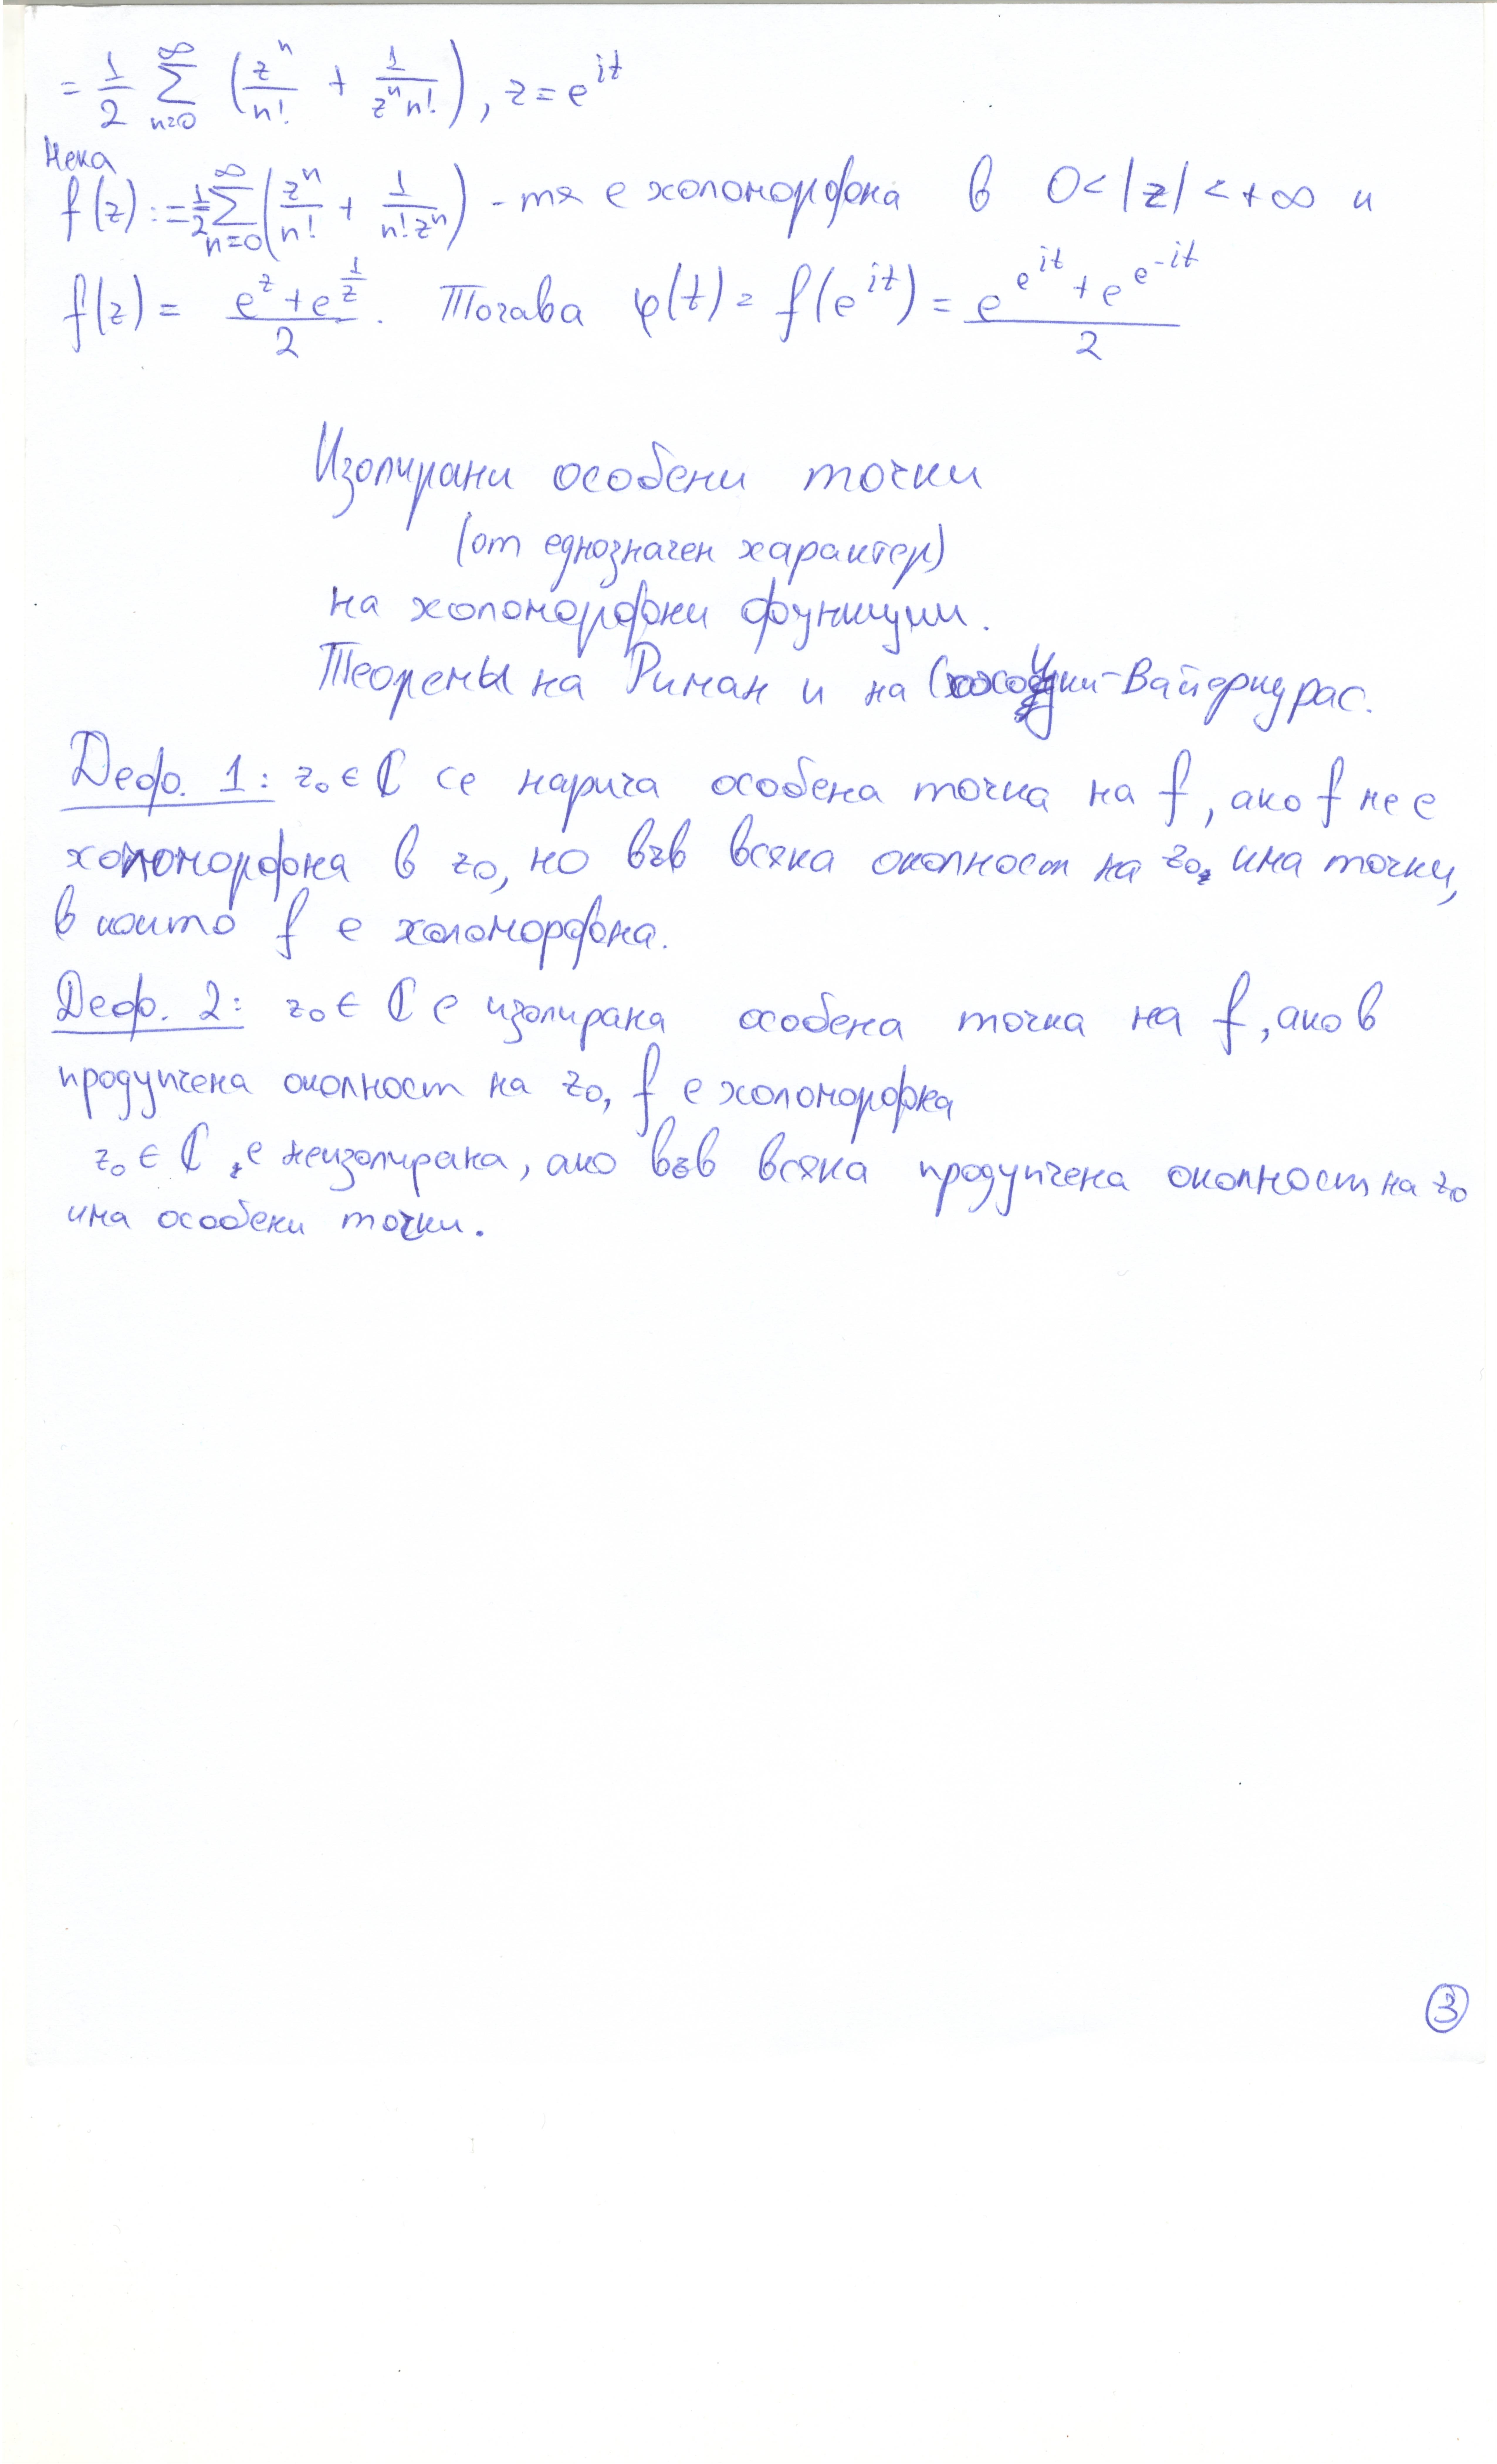 = 1/2 ∑_{n=0}^{∞} (z^n/n! + 1/(z^n n!)), z = e^{it}
Нека
f(z) := 1/2 ∑_{n=0}^{∞} (z^n/n! + 1/(n! z^n)) - тя е холоморфна в 0 < |z| < +∞ и
f(z) = (e^z + e^{1/z})/2. Тогава φ(t) = f(e^{it}) = (e^{e^{it}} + e^{e^{-it}})/2
Изолирани особени точки
(от еднозначен характер)
на холоморфни функции.
Теореми на Риман и на -Вайерщрас.
Деф. 1: z₀ ∈ ℂ се нарича особена точка на f, ако f не е
холоморфна в z₀, но във всяка околност на z₀ има точки,
в които f е холоморфна.
Деф. 2: z₀ ∈ ℂ е изолирана особена точка на f, ако в
продупчена околност на z₀, f е холоморфна
z₀ ∈ ℂ, е неизолирана, ако във всяка продупчена околност на z₀
има особени точки.
3